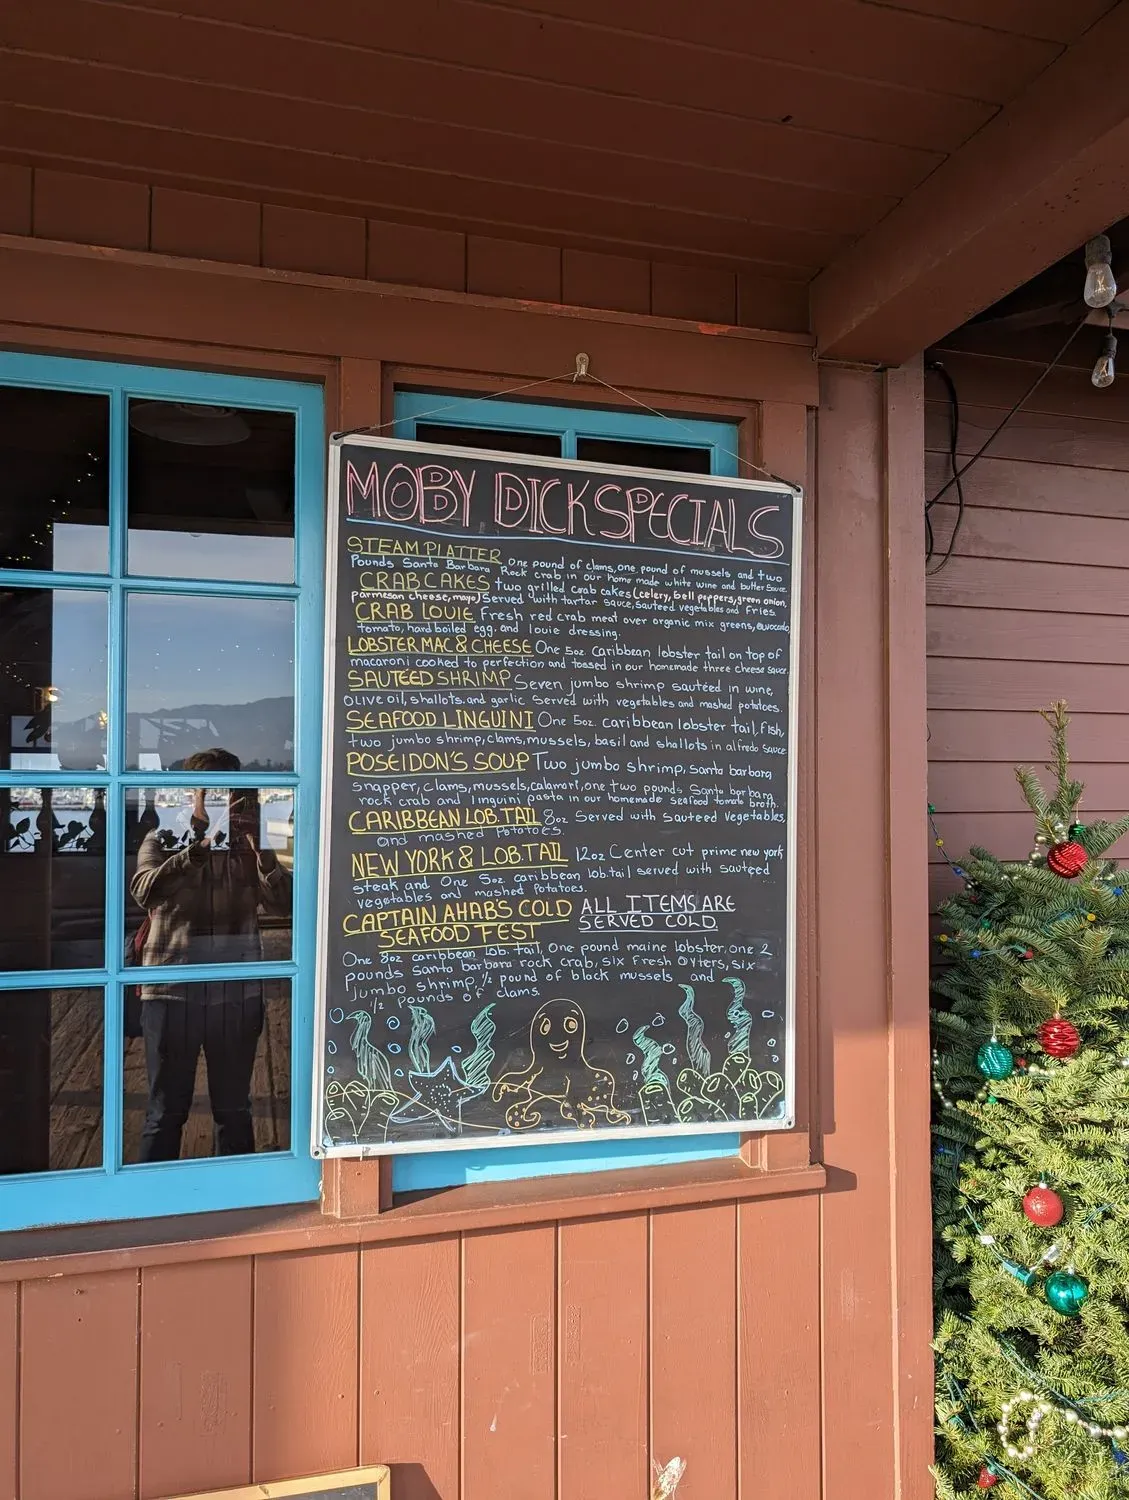 MOBY DICK SPECIALS
STEAM PLATTER One pound of clams, one pound of mussels and two
Pounds Santa Barbara Rock crab in our home made white wine and butter sauce
CRAB CAKES two grilled crab cakes (celery, bell peppers, green onion,
parmesan cheese, mayo) Served with tartar sauce, sauteed vegetables and Fries
CRAB LOUIE Fresh red crab meat over organic mix greens, avocado
tomato, hard boiled egg. and louie dressing.
LOBSTER MAC & CHEESE One 5oz. Caribbean lobster tail on top of
macaroni cooked to perfection and tossed in our homemade three cheese sauce.
SAUTÉED SHRIMP Seven jumbo shrimp sautéed in wine,
Olive oil, shallots, and garlic Served with vegetables and mashed potatoes.
SEAFOOD LINGUINI One 5oz. caribbean lobster tail, fish,
two jumbo shrimp, clams, mussels, basil and shallots in alfredo sauce
POSEIDON'S SOUP Two jumbo shrimp, Santa barbara
snapper, clams, mussels, calamari, one two pounds Santa barbara
rock crab and linguini pasta in our homemade seafood tomato broth.
CARIBBEAN LOB. TAIL 8oz Served with sauteed vegetables,
and mashed Potatoes.
NEW YORK & LOB. TAIL 12oz Center cut prime new york
steak and One 5oz caribbean lob. tail served with sautéed
vegetables and mashed Potatoes.
CAPTAIN AHAB'S COLD ALL ITEMS ARE
SEAFOOD FEST SERVED COLD.
One 8oz caribbean lob. tail, One pound maine lobster, one 2
pounds Santa barbara rock crab, six Fresh Oyters, six
jumbo shrimp, ½ pound of black mussels and
½ pounds of clams.